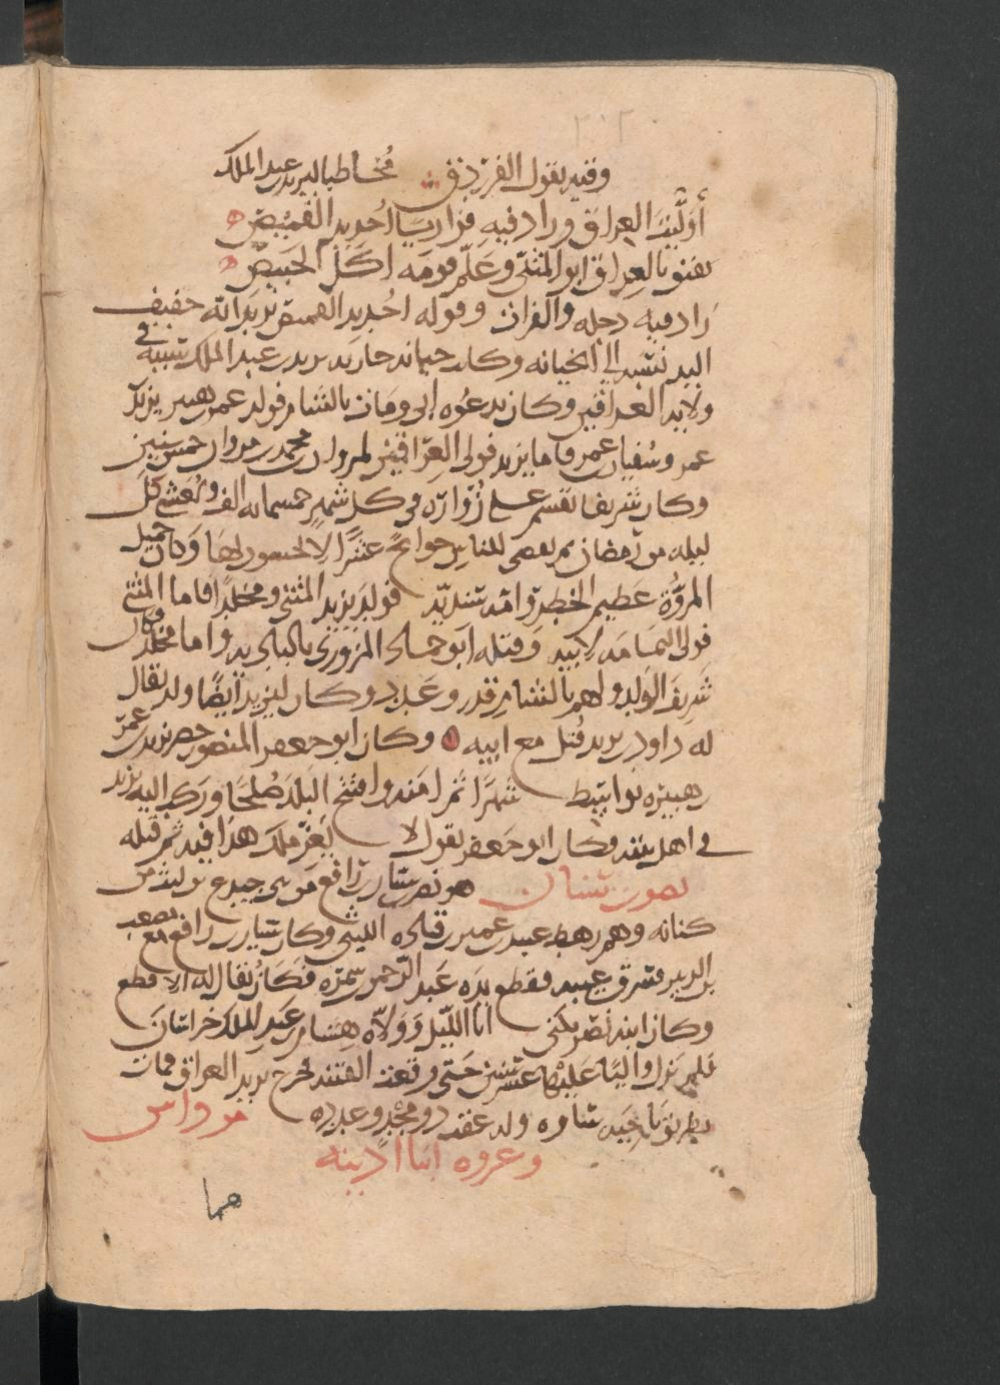 وفيه يقول الفرزدق مخاطبا ليزيد بن عبد الملك
أوليت العراق ورافديه فزاريا احد يد القميص
تفنق بالعراق ابو المثنى وعلم قومه اكل الخبيص
رافديه دجله والفرات وقوله احد يد القميص يريد انه خفيف
اليد نسبه الى الخيانه وكان حبابه جاريه يزيد بن عبد الملك تسببه في
ولايه العراقين وكان يدعوه ابي ومات بالشام فولد عمر بن هبيره يزيد بن
عمر وسفيان بن عمر فاما يزيد فولى العراقين لمروان بن محمد بن مروان خمس سنين
وكان شريفا يقسم على زواره في كل شهر خمسمائه الف ويعشي كل
ليله من رمضان ثم يقضي للناس حوائج عشرا لا يحبسون لها وكان جميل
المروة عظيم الخطر وامه سنديه فولد يزيد المثنى ومخلدا فاما المثنى
فولى اليمامه لابيه وقتله ابو حماد المروزي بالباديه واما مخلد فكان
شريف الولد ولهم بالشام قدر وعدد وكان ليزيد ايضا ولد يقال
له داود بن يزيد قتل مع ابيه وكان ابو جعفر المنصور حصر يزيد بن عمر
بن هبيره بواسط شهرا ثم امنه وافتتح البلد صلحا وركب اليه يزيد
في اهل بيته فكان ابو جعفر يقول لا يعز ملك هذا فيه ثم قتله
نصر بن سيار هو نصر بن سيار بن رافع من بني جندع بن ليث من
كنانه وهم رهط عبيد بن عمير بن قتاده الليثي وكان سيار بن رافع مع مصعب
بن الزبير فسرق عيبه فقطع يده عبد الرحمن بن سمره فكان يقال له الاقطع
وكان ابنه نصر يكنى ابا الليث وولاه هشام بن عبد الملك خراسان
فلم يزل واليا عليها عشر سنين حتى وقعت الفتنه فخرج يريد العراق فمات
بطريق ناحيه ساوه وله عقب ذو مجد وعدده مرداس
وعروه ابنا ادينه
هما